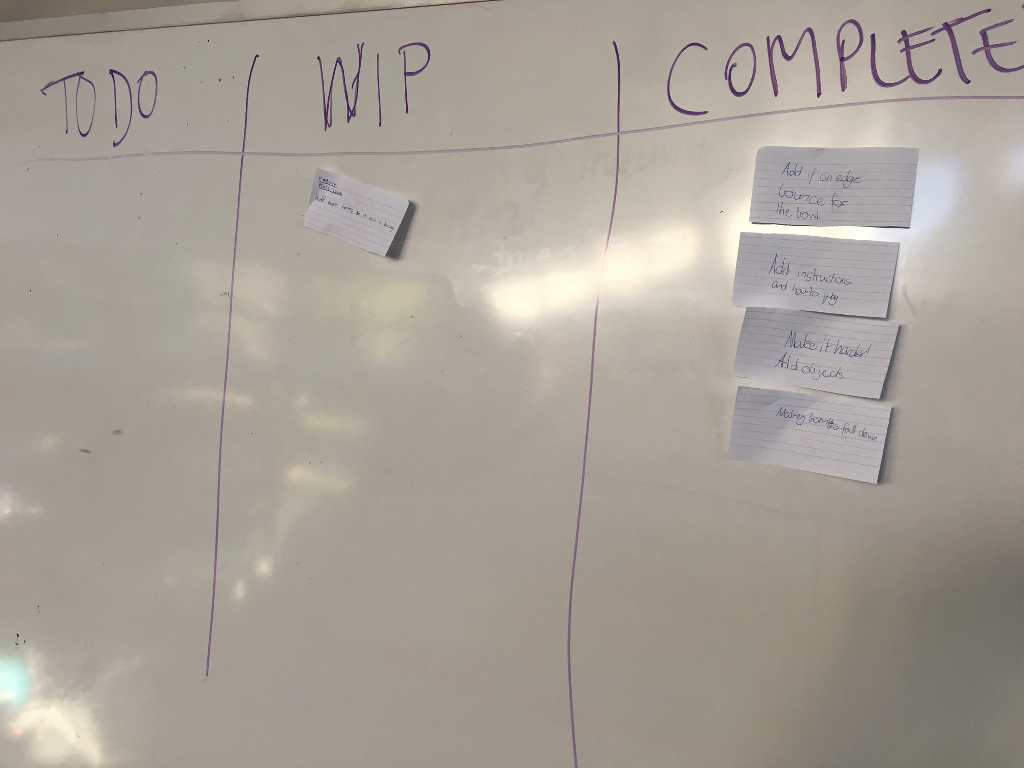 TODO
WIP
COMPLETE
Add
Add if on edge
bounce for
the bowl
Add instructions
and how to play
Make it harder!
Add objects
fall down